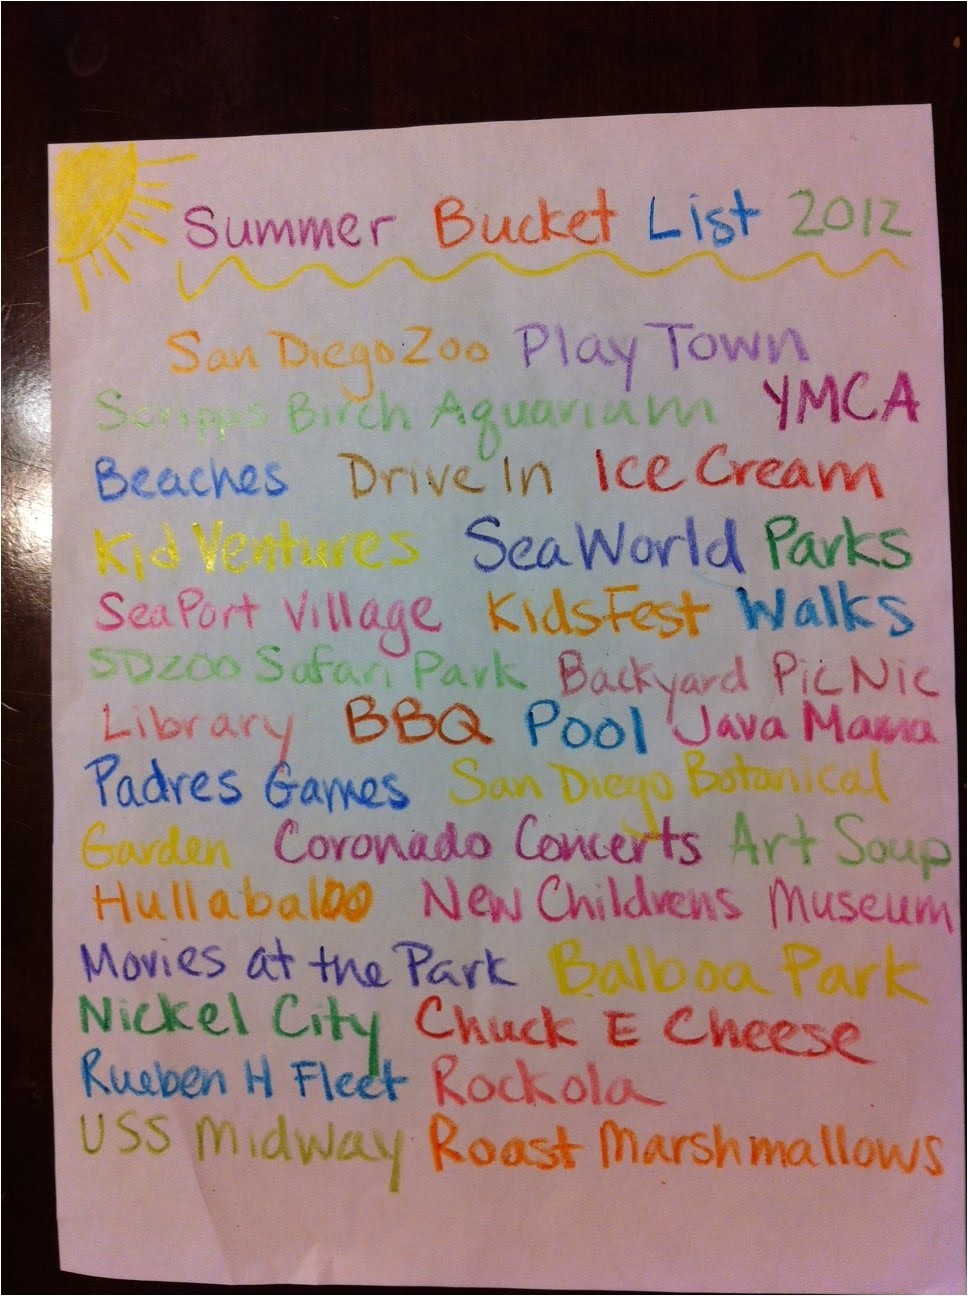 Summer Bucket List 2012
San Diego Zoo Play Town
Scripps Birch Aquarium YMCA
Beaches Drive In Ice Cream
Kid Ventures Sea World Parks
SeaPort Village KidsFest Walks
SDZOO Safari Park Backyard PicNic
Library BBQ Pool Java Mama
Padres Games San Diego Botanical
Garden Coronado Concerts Art Soup
Hullabaloo New Childrens Museum
Movies at the Park Balboa Park
Nickel City Chuck E Cheese
Rueben H Fleet Rockola
USS Midway Roast Marshmallows